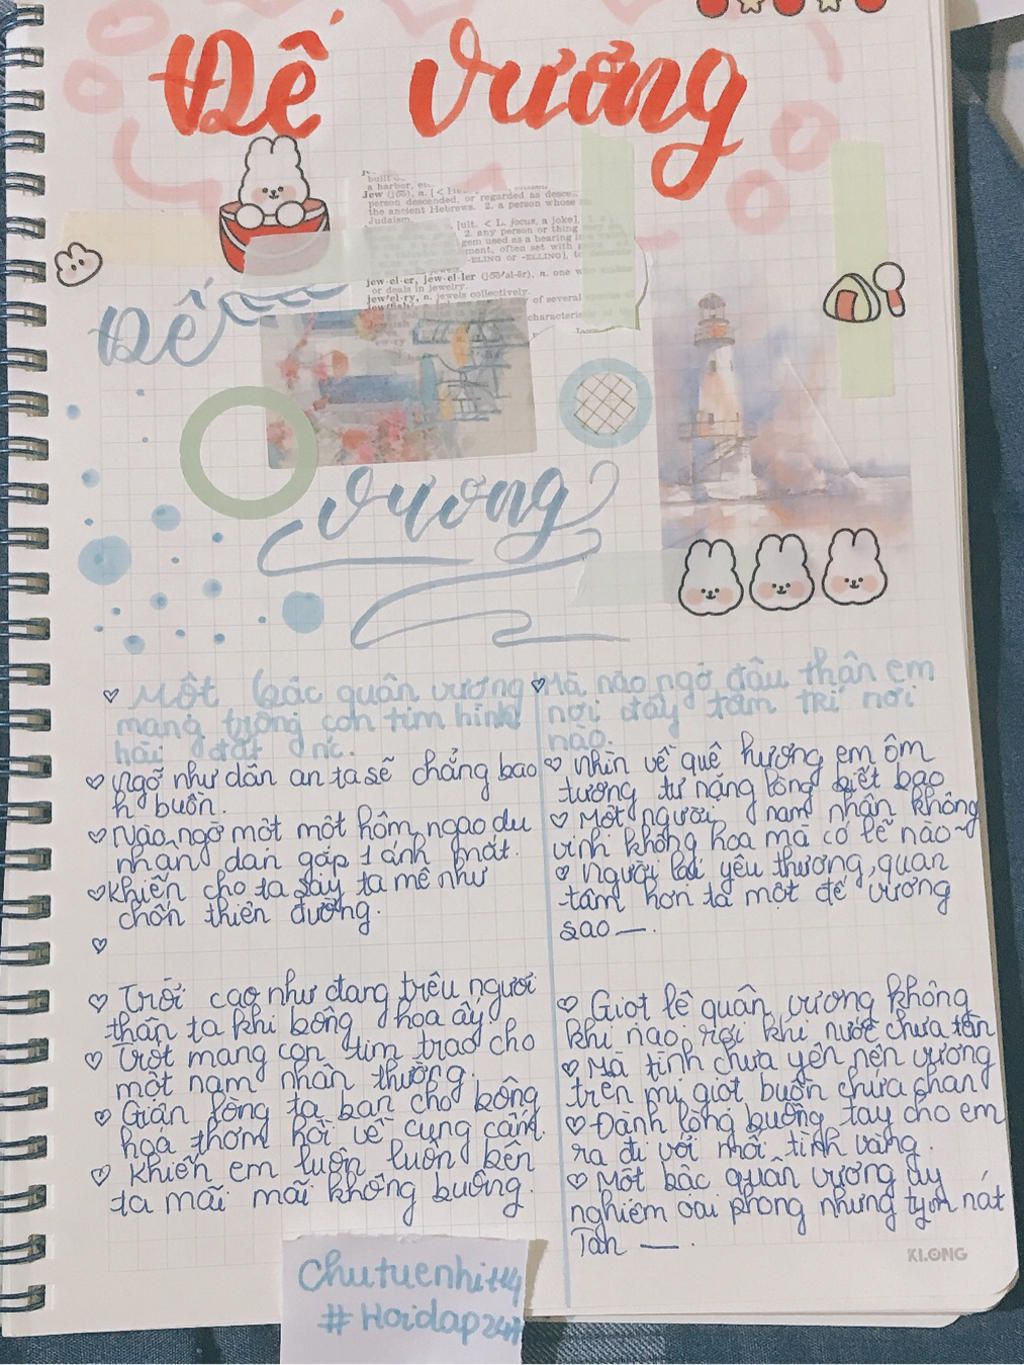 Đế Vương
built
a harbor, etc.
Jew (jōō), n. [<
person descended, or regarded as
the ancient Hebrews. 2. a person whose
Judaism.
[ult. < L. jocus, a joke]
2. any person or thing
gem used as a bearing
ment, often set with
-ELING or -ELLING],
jew·el·er, jew·el·ler (jōō'əl-ẽr), n. one
or deals in jewelry.
jew'el·ry, n. jewels collectively.
of several
characteris
Đế
vương
Một bậc quân vương
mang trong con tim hình
hài đất nc.
Ngỡ như dân an ta sẽ chẳng bao
h buồn.
Nào ngờ một một hôm ngao du
nhân dan gặp 1 ánh mắt.
Khiến cho ta say ta mê như
chốn thiên đường.
Trời cao như đang trêu ngươi
thân ta khi bông hoa ấy.
Trót mang con tim trao cho
một nam nhân thường.
Giận lòng ta ban cho bông
hoa thơm hồi về cung cấm.
Khiến em luôn luôn bên
ta mãi mãi không buông.
Mà nào ngờ đâu thân em
nơi đây tâm trí nơi
nào.
Nhìn về quê hương em ôm
tương tư nặng lòng biết bao
Một người nam nhân không
vinh không hoa mà có lẽ nào
Người lại yêu thương, quan
tâm hơn ta một đế vương
sao —.
Giọt lệ quân vương không
khi nào rơi khi nước chưa tan
Mà tình chưa yên nên vương
trên mi giọt buồn chứa chan
Đành lòng buông tay cho em
ra đi với mối tình vàng.
Một bậc quân vương ấy
nghiêm oai phong nhưng tym nát
Tan —.
KLONG
Chutuenhi
#Hoidap247